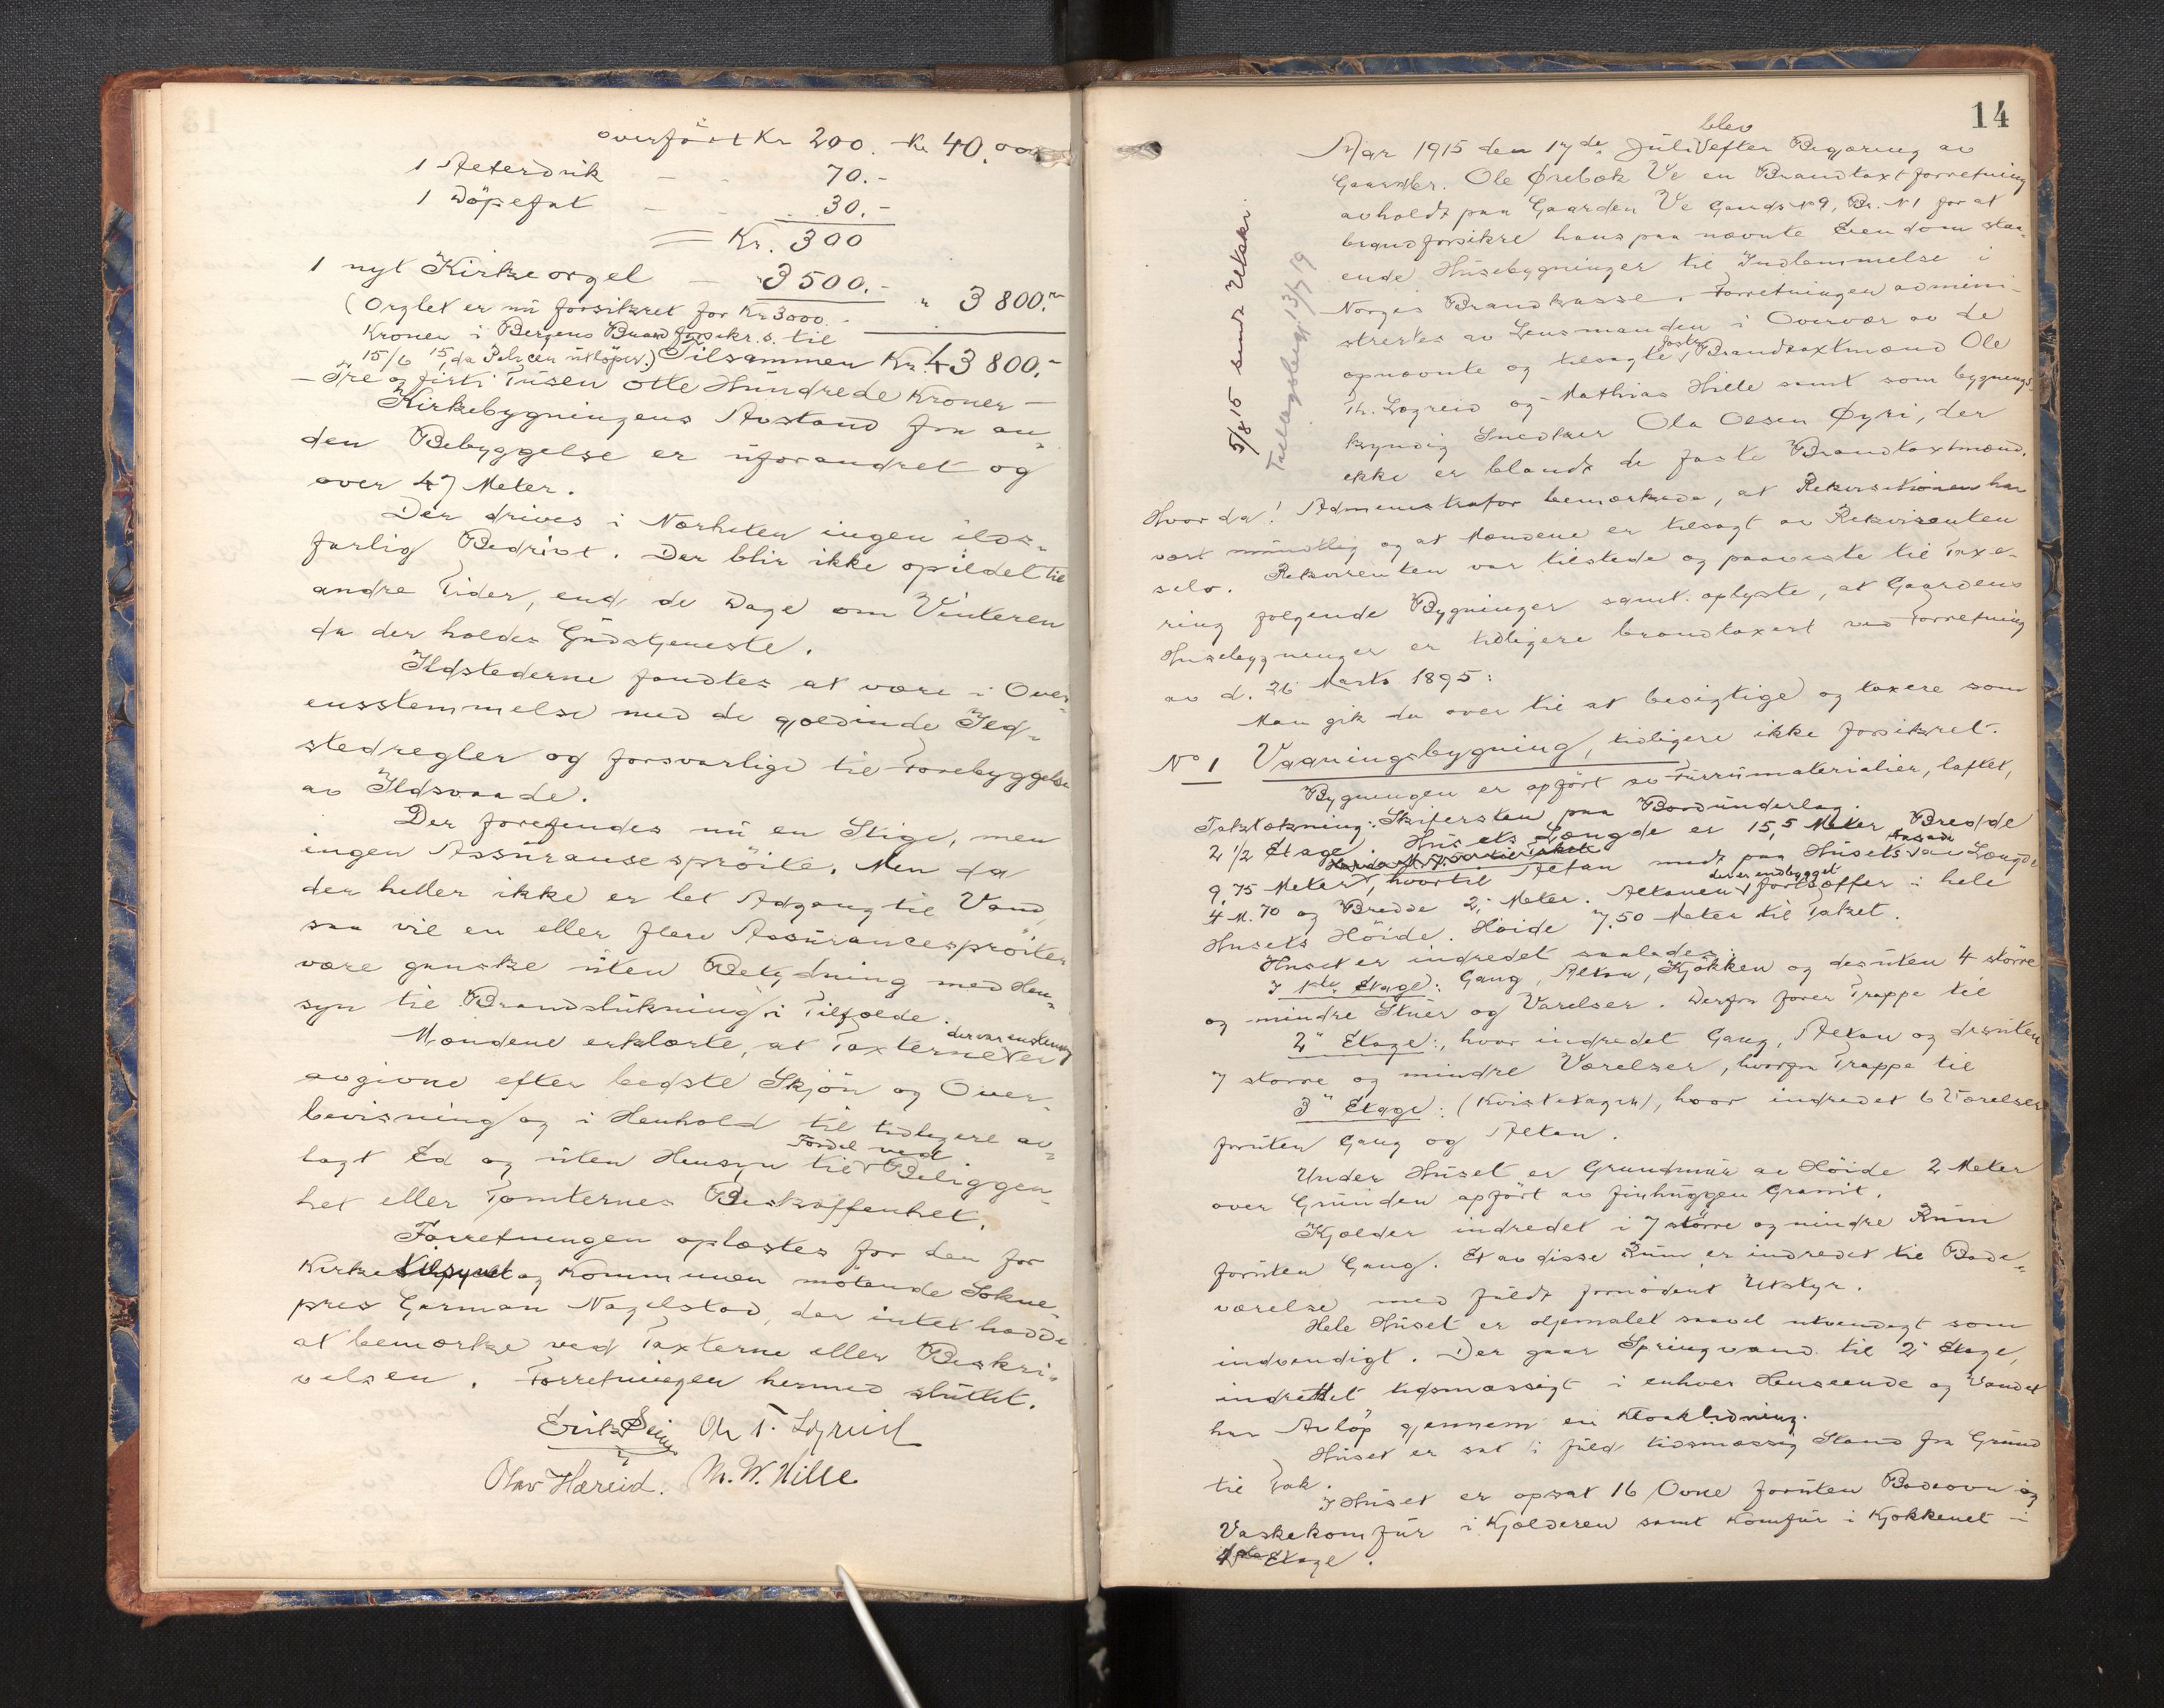 overført Kr 200.- Kr 40,000
1 Alterduk - - - 70.-
1 Döpefat - - 30.-
= Kr. 300
1 nyt Kirkeorgel - " 3500.- " 3800.-
(Orglet er nu forsikret for Kr 3000.-
Kroner i Bergens Brandforsikr. s. til
15/6 15, da Policen utlöper.) Tilsammen Kr. 43 800.-
- Tre og firti Tusen otte Hundrede Kroner -
Kirkebygningens Avstand fra an-
den Bebyggelse er uforandret og
over 47 Meter.
Der drives i Nærheten ingen ilds-
farlig Bedrivt. Der blir ikke opildet til
andre Tider, end de Dage om Vinteren
da der holdes Gudstjeneste.
Ildstederne fandtes at være i Over-
ensstemmelse med de gjældende Ild-
stedregler og forsvarlige til Forebyggelse
av Ildsvaade.
Der forefindes nu en Stige, men
ingen Assuransespröite. Men da
der heller ikke er let Adgang til Vand,
saa vil en eller flere Assurancespröiter
være ganske uten Betydning med Hen-
syn til Brandslukning i Tilfælde.
der var enstemmig
Mændene erklærte, at Taxterne er
avgivne efter bedste Skjön og Over-
bevisning og i Henhold til tidligere av-
Fordel ved
lagt Ed og uten Hensyn til Beliggen-
het eller Tomternes Beskaffenhet.
Forretningen oplæstes for den for
Kirketilsynet og Kommunen mötende Sokne-
pres Garman Nagelstad, der intet hadde
at bemærke ved Taxterne eller Beskri-
velsen. Forretningen hermed sluttet.
Ole T. Lögreid
Olav Hæreid. M. W. Hille
14
blev
Aar 1915 den 17de Juli efter Begjæring av
Gaardbr. Ole Ørebæk Ve en Brandtaxtforretning
avholdt paa Gaarden Ve Gaards N 9, Br. N 1 for at
brandforsikre hans paa nævnte Eiendom staa-
ende Husebygninger til Indlemmelse i
Norges Brandkasse. Forretningen admini-
streres av Lensmanden i Overvær av de
faste
opnævnte og tilsagte Brandtaxtmænd Ole
Th. Lögreid og Mathias Hille samt som bygnings-
kyndig Snedker Ola Olsen Øyri, der
ikke er blandt de faste Brandtaxtmænd.
5/8 15 sendt Utskr.
Tillægsbesigt. 13/7 19
Hvorda! Administrator bemærkede, at Rekvisitionen har
vært mundtlig og at Mændene er tilsagt av Rekvirenten
selv. Rekvirenten var tilstede og paaviste til Taxe-
ring følgende Bygninger samt oplyste, at Gaardens
Husebygninger er tidligere brandtaxert ved Forretning
av d. 26 Marts 1895:
Man gik da over til at besigtige og taxere som
No 1 Vaaningsbygning, tidligere ikke forsikret.
Bygningen er opfört av Furrumaterialier, laftet,
Taktækning: Skifersten paa Bordunderlag.
2 1/2 Etage. Husets Længde er 15,5 Meter Bredde
9,75 Meter, hvortil Altan midt paa Husets Fasade av Længde
der er indbygget
4 M. 70 og Bredde 2,- Meter. Altanen fortsætter i hele
Husets Höide. Höide 7,50 Meter til Taket.
Huset er indredet saaledes:
I 1ste Etage: Gang, Altan, Kjökken og desuten 4 större
og mindre Stuer og Værelser. Derfra fører Trappe til
2" Etage:, hvor indredet Gang, Altan og desuten
7 større og mindre Værelser, hvorfra Trappe til
3" Etage: (Kvistetagen), hvor indredet 6 Værelser
foruten Gang og Altan.
Under Huset er Grundmur av Höide 2 Meter
over Grunden opfört av finhuggen Granit.
Kjælder indredet i 7 större og mindre Rum
foruten Gang. Et av disse Rum er indredet til Bade-
værelse med fuldt fornödent Utstyr.
Hele Huset er oljemalet saavel utvendigt som
indvendigt. Der gaar Springvand til 2" Etage,
indrettet tidsmæssigt i enhver Henseende og Vandet
har Avlöp gjennem en Kloakledning.
Huset er sat i fuld tidsmæssig Stand fra Grund
til Tak.
I Huset er opsat 16 Ovne foruten Badeovn og
Vaskekomfur i Kjælderen samt Komfur i Kjøkkenet i
1ste Etage.